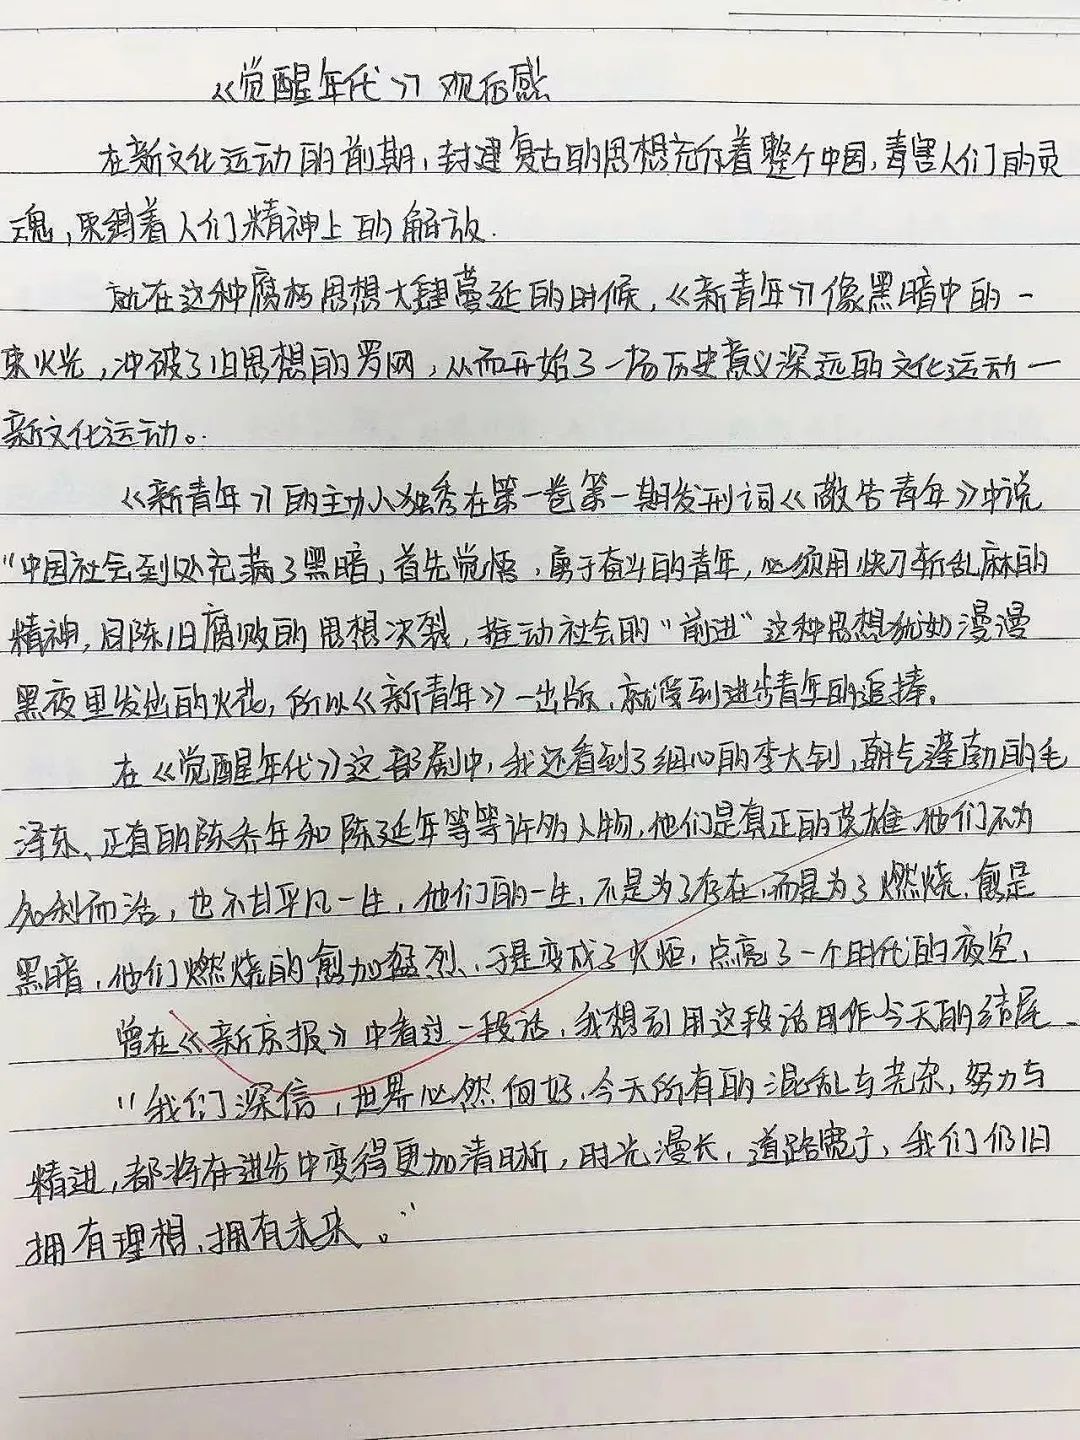 《觉醒年代》观后感
在新文化运动的前期,封建复古的思想充斥着整个中国,毒害人们的灵
魂,束缚着人们精神上的解放.
就在这种腐朽思想大肆蔓延的时候,《新青年》像黑暗中的一
束火光,冲破了旧思想的罗网,从而开始了一场历史意义深远的文化运动一
新文化运动。
《新青年》的主办人独秀在第一卷第一期发刊词《敬告青年》中说
"中国社会到处充满了黑暗,首先觉悟,勇于奋斗的青年,必须用快刀斩乱麻的
精神,同陈旧腐败的思想决裂,推动社会的"前进"这种思想犹如漫漫
黑夜里发出的火花,所以《新青年》一出版,就受到进步青年的追捧。
在《觉醒年代》这部剧中,我还看到了细心的李大钊,朝气蓬勃的毛
泽东、正直的陈乔年和陈延年等等许多人物,他们是真正的英雄.他们不为
名利而活,也不甘平凡一生,他们的一生,不是为了存在,而是为了燃烧.愈是
黑暗,他们燃烧的愈加猛烈、于是变成了火炬,点亮了一个时代的夜空,
曾在《新京报》中看过一段话,我想引用这段话用作今天的结尾
"我们深信,世界必然向好.今天所有的混乱与芜杂,努力与
精进,都将在进步中变得更加清晰,时光漫长,道路宽广,我们仍旧
拥有理想、拥有未来。"